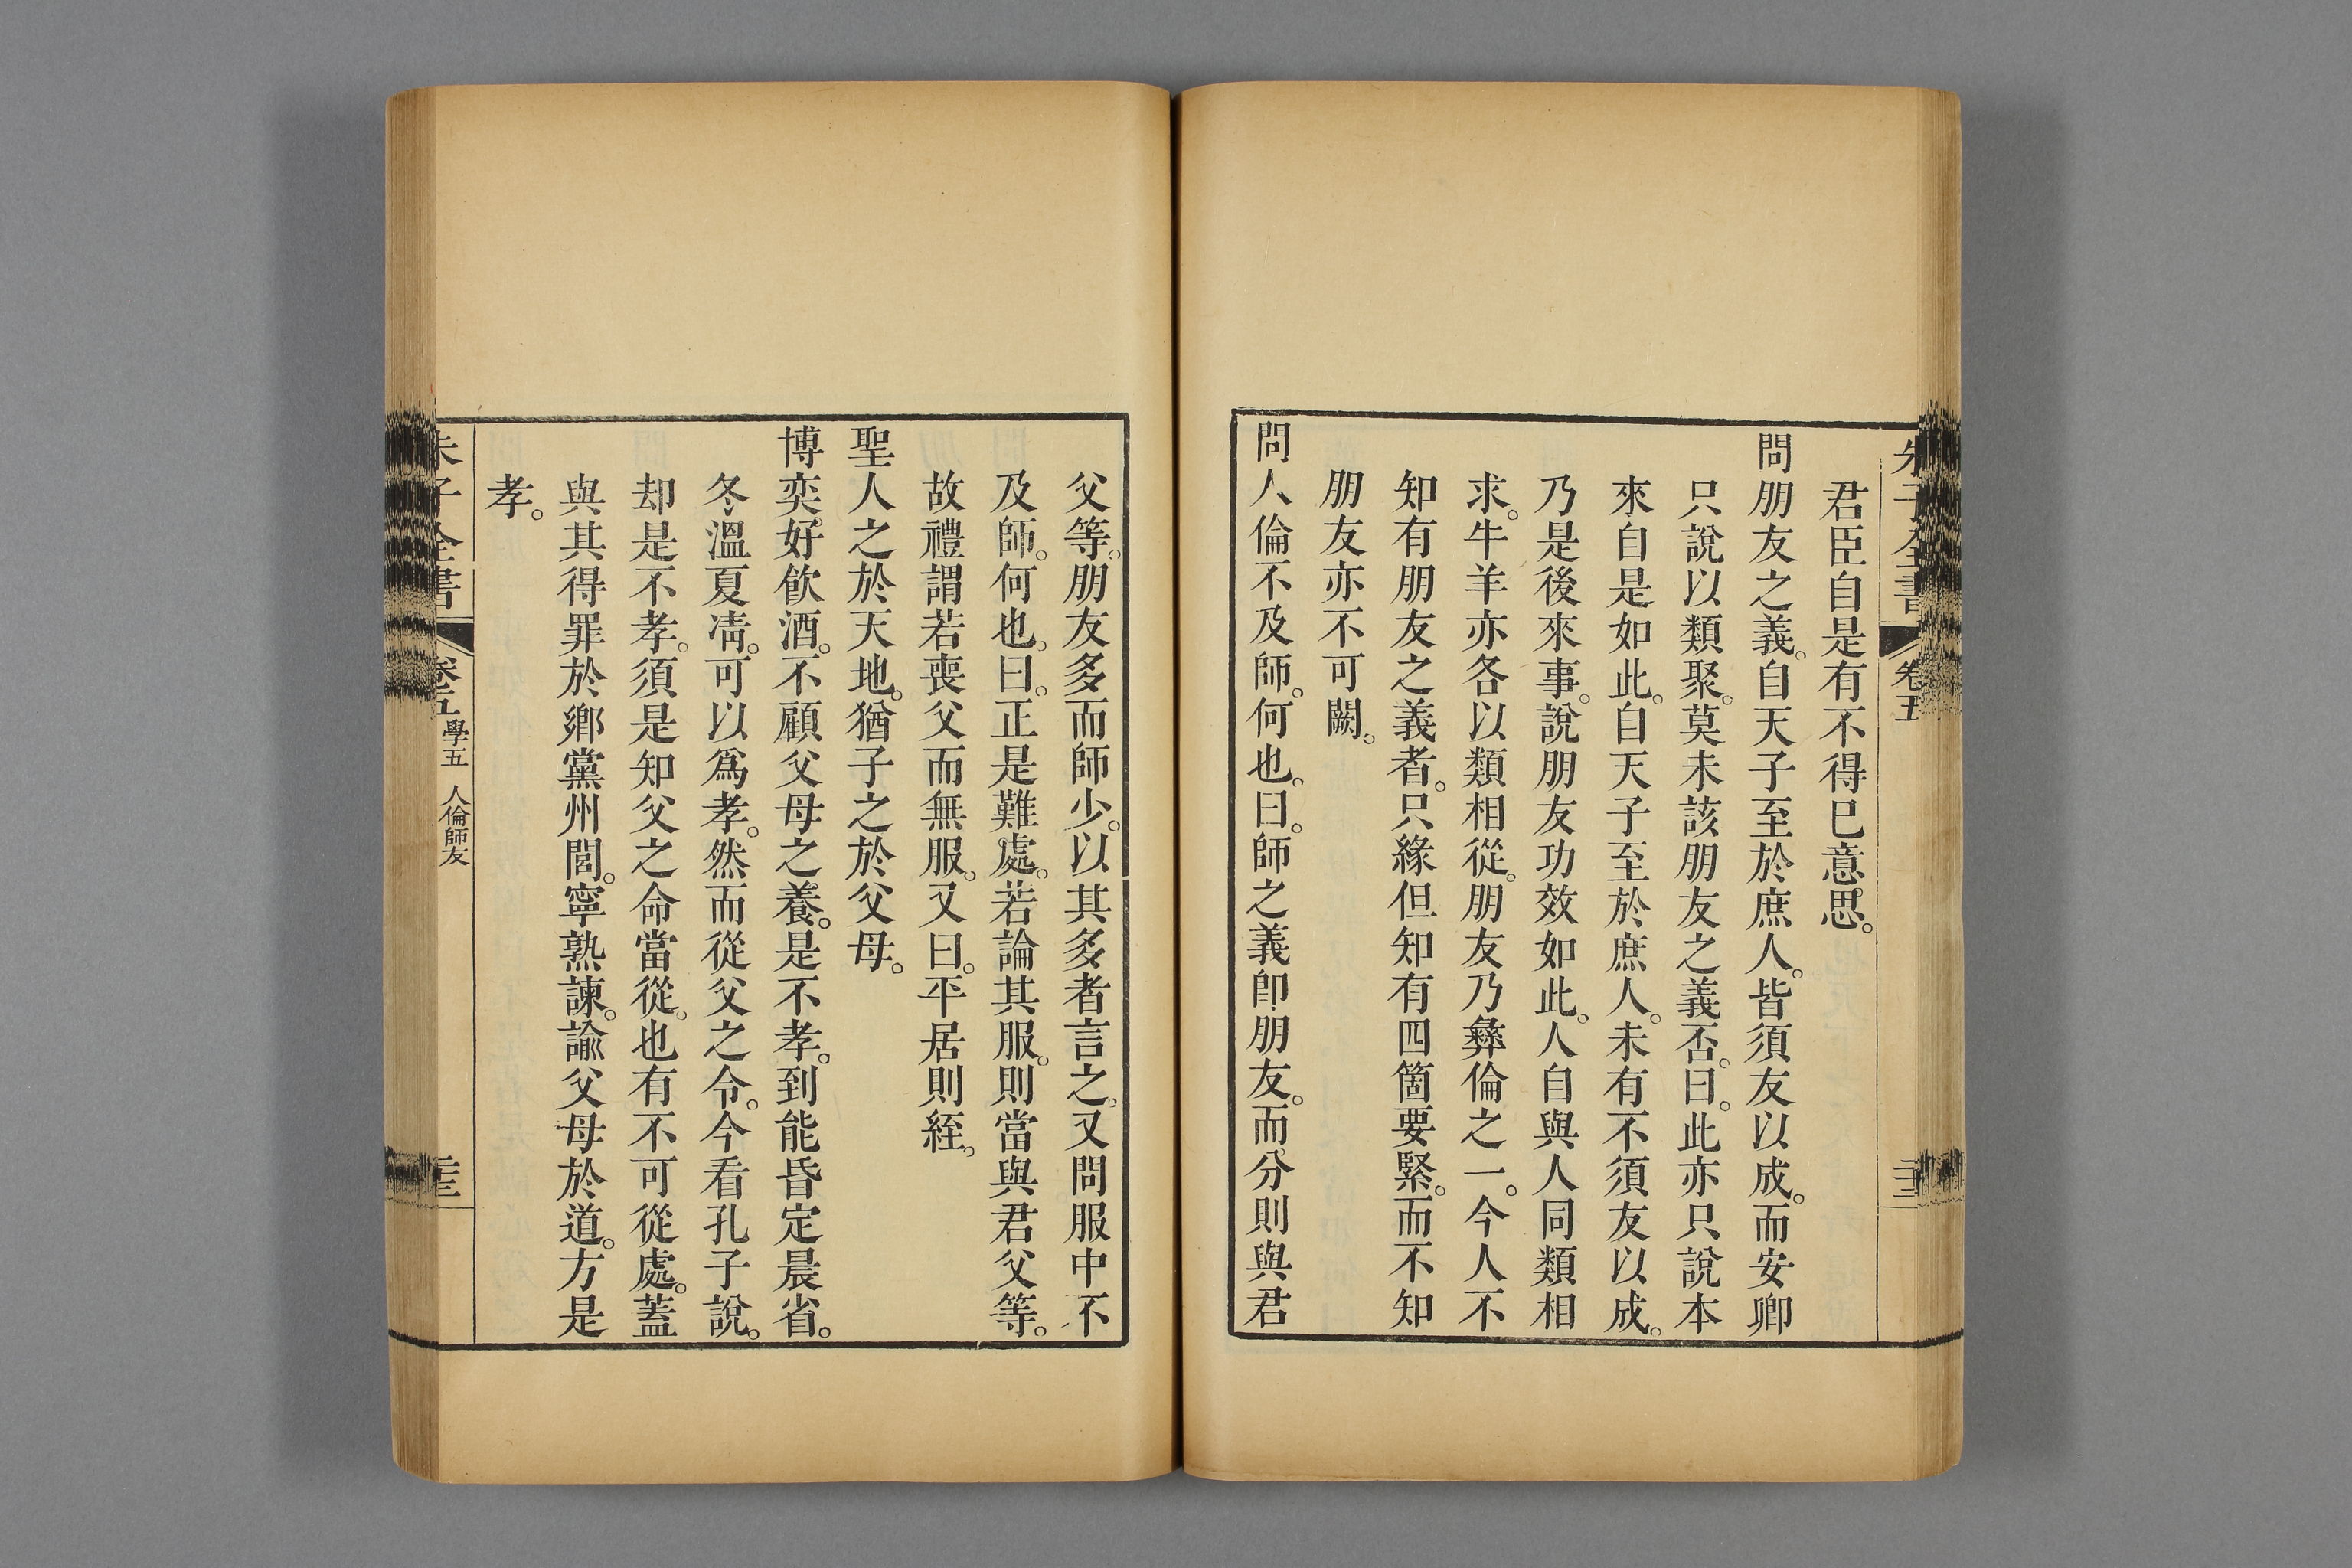 朱子全書 卷五 二十二
君臣自是有不得已意思。
問朋友之義。自天子至於庶人。皆須友以成。而安卿
只說以類聚。莫未該朋友之義否。曰。此亦只說本
來自是如此。自天子至於庶人。未有不須友以成。
乃是後來事。說朋友功效如此。人自與人同類相
求。牛羊亦各以類相從。朋友乃彝倫之一。今人不
知有朋友之義者。只緣但知有四箇要緊。而不知
朋友亦不可闕。
問人倫不及師。何也。曰。師之義卽朋友。而分則與君
父等。朋友多而師少。以其多者言之。又問服中不
及師。何也。曰。正是難處。若論其服。則當與君父等。
故禮謂若喪父而無服。又曰。平居則絰。
聖人之於天地。猶子之於父母。
博奕。好飮酒。不顧父母之養。是不孝。到能昏定晨省。
冬溫夏凊。可以爲孝。然而從父之令。今看孔子說。
却是不孝。須是知父之命當從。也有不可從處。蓋
與其得罪於鄕黨州閭。寧熟諫。諭父母於道。方是
孝。
朱子全書 卷五 學五 人倫師友